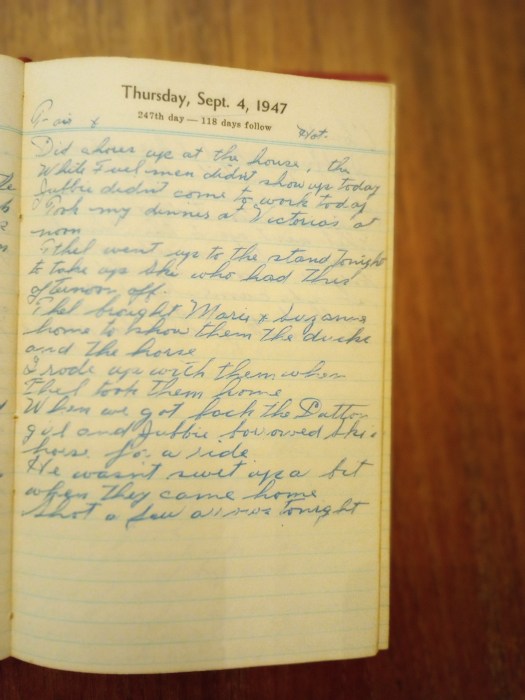 Thursday, Sept. 4, 1947
247th day — 118 days follow
Fair & Hot.
Did chores up at the house, the
White Fuel men didn't show up today
Jubbie didn't come to work today
I Took my dinner at Victoria's at
noon
Ethel went up to the stand Tonight
to take up Ski who had this
afternoon off.
Ethel brought Marie & Suzanne
home to show them the ducks
and the horse
I rode up with them when
Ethel took them home
When we got back the Dutton
girl and Jubbie borrowed Ski's
horse for a ride
He wasn't swet up a bit
when they came home
Shot a few arrows tonight